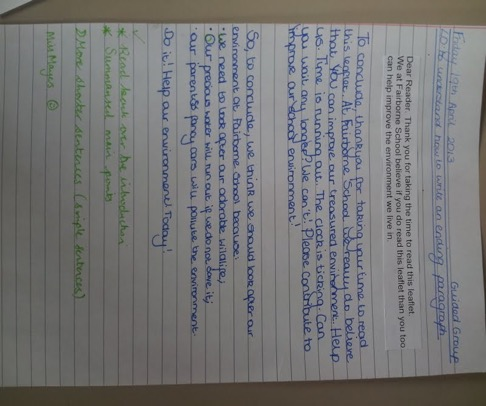 Friday 19th April 2013 Guided Group
LO to understand how to write an ending paragraph
Dear Reader. Thank you for taking the time to read this leaflet.
We at Fairborne School believe if you do read this leaflet than you too
can help improve the environment we live in.
To conclude, thankyou for taking your time to read
this leaflet. At Fairborne School we really do believe
that you can improve our treasured environment. Help
us. Time is running out. The clock is ticking. Can
you wait any longer? We can't! Please contribute to
improve our school environment!
So, to conclude, we think we should look after our
environment at Fairborne School because:
• We need to look after our adorable wildlife;
• Our precious water will run out if we do not save it;
• our parents pongy cars will pollute the environment.
Do it! Help our environment! Today!
* Read back over the introduction
* Summarised main points
2) More shorter sentences (simple sentences)
Miss Mayes